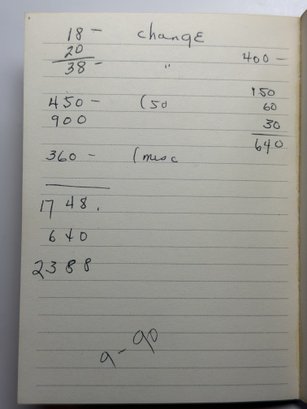 18 – change
20
38 – "
400 –
150
60
30
640
450 – (50
900
360 – (misc
1748.
640
2388
9 – 90